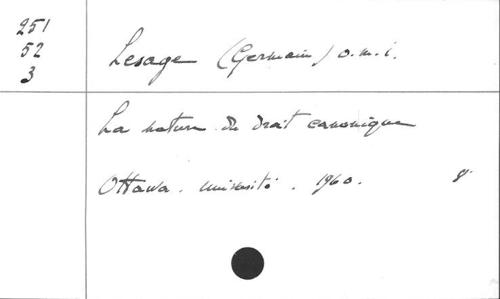 251
52
3
Lesage (Germain) o.m.i.
La nature du droit canonique
Ottawa. université. 1960. 8°